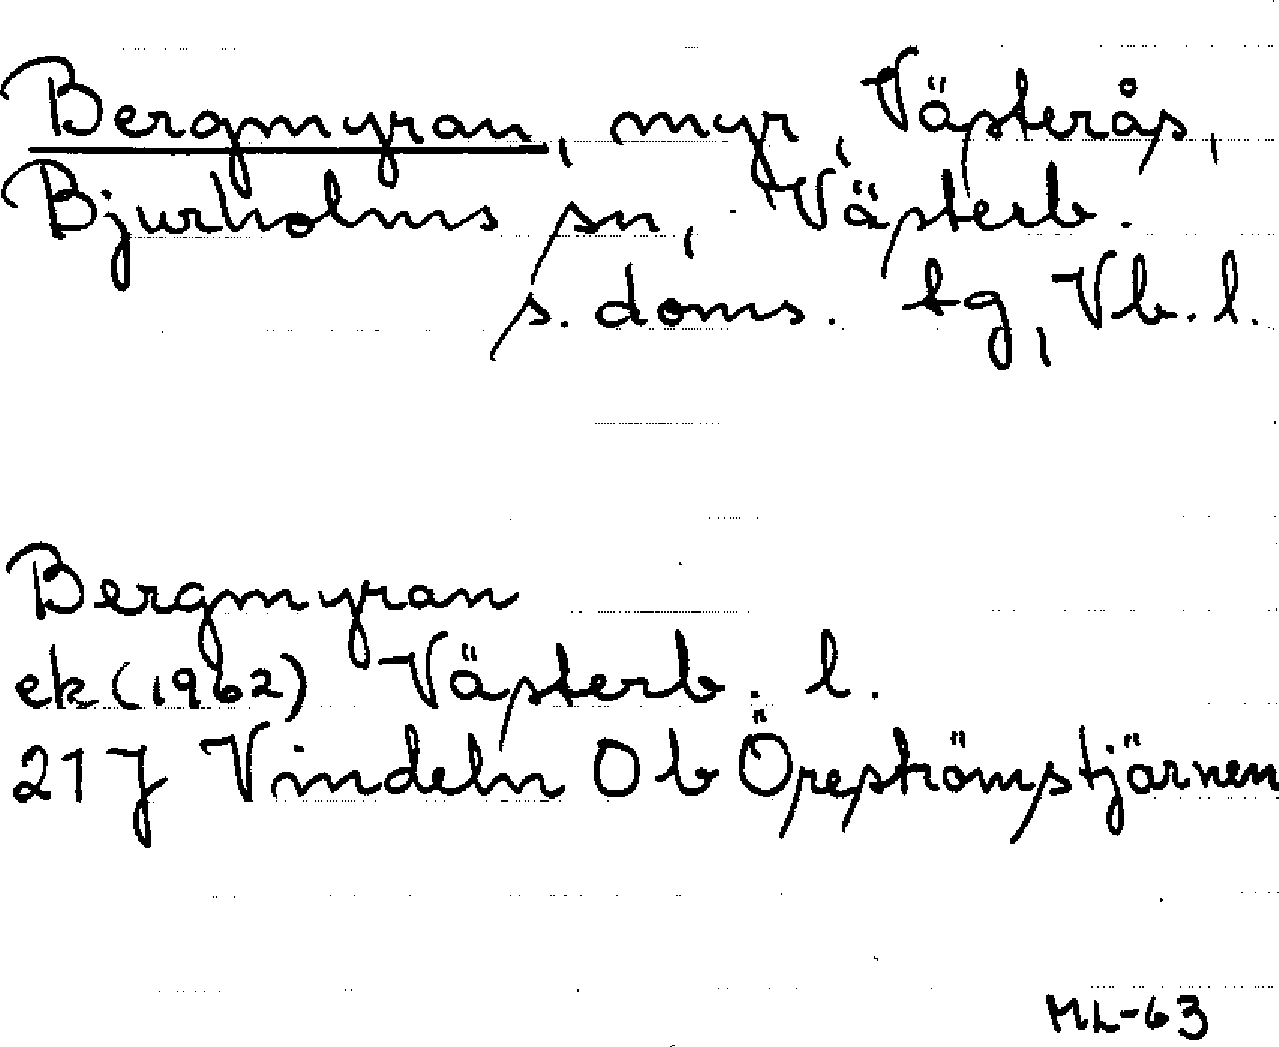 Bergmyran, myr, Västerås,
Bjurholms sn, Västerb.
s. doms. tg, Vb. l.
Bergmyran
ek (1962) Västerb. l.
21 J Vindeln 0 b Öreströmstjärnen
ML-63